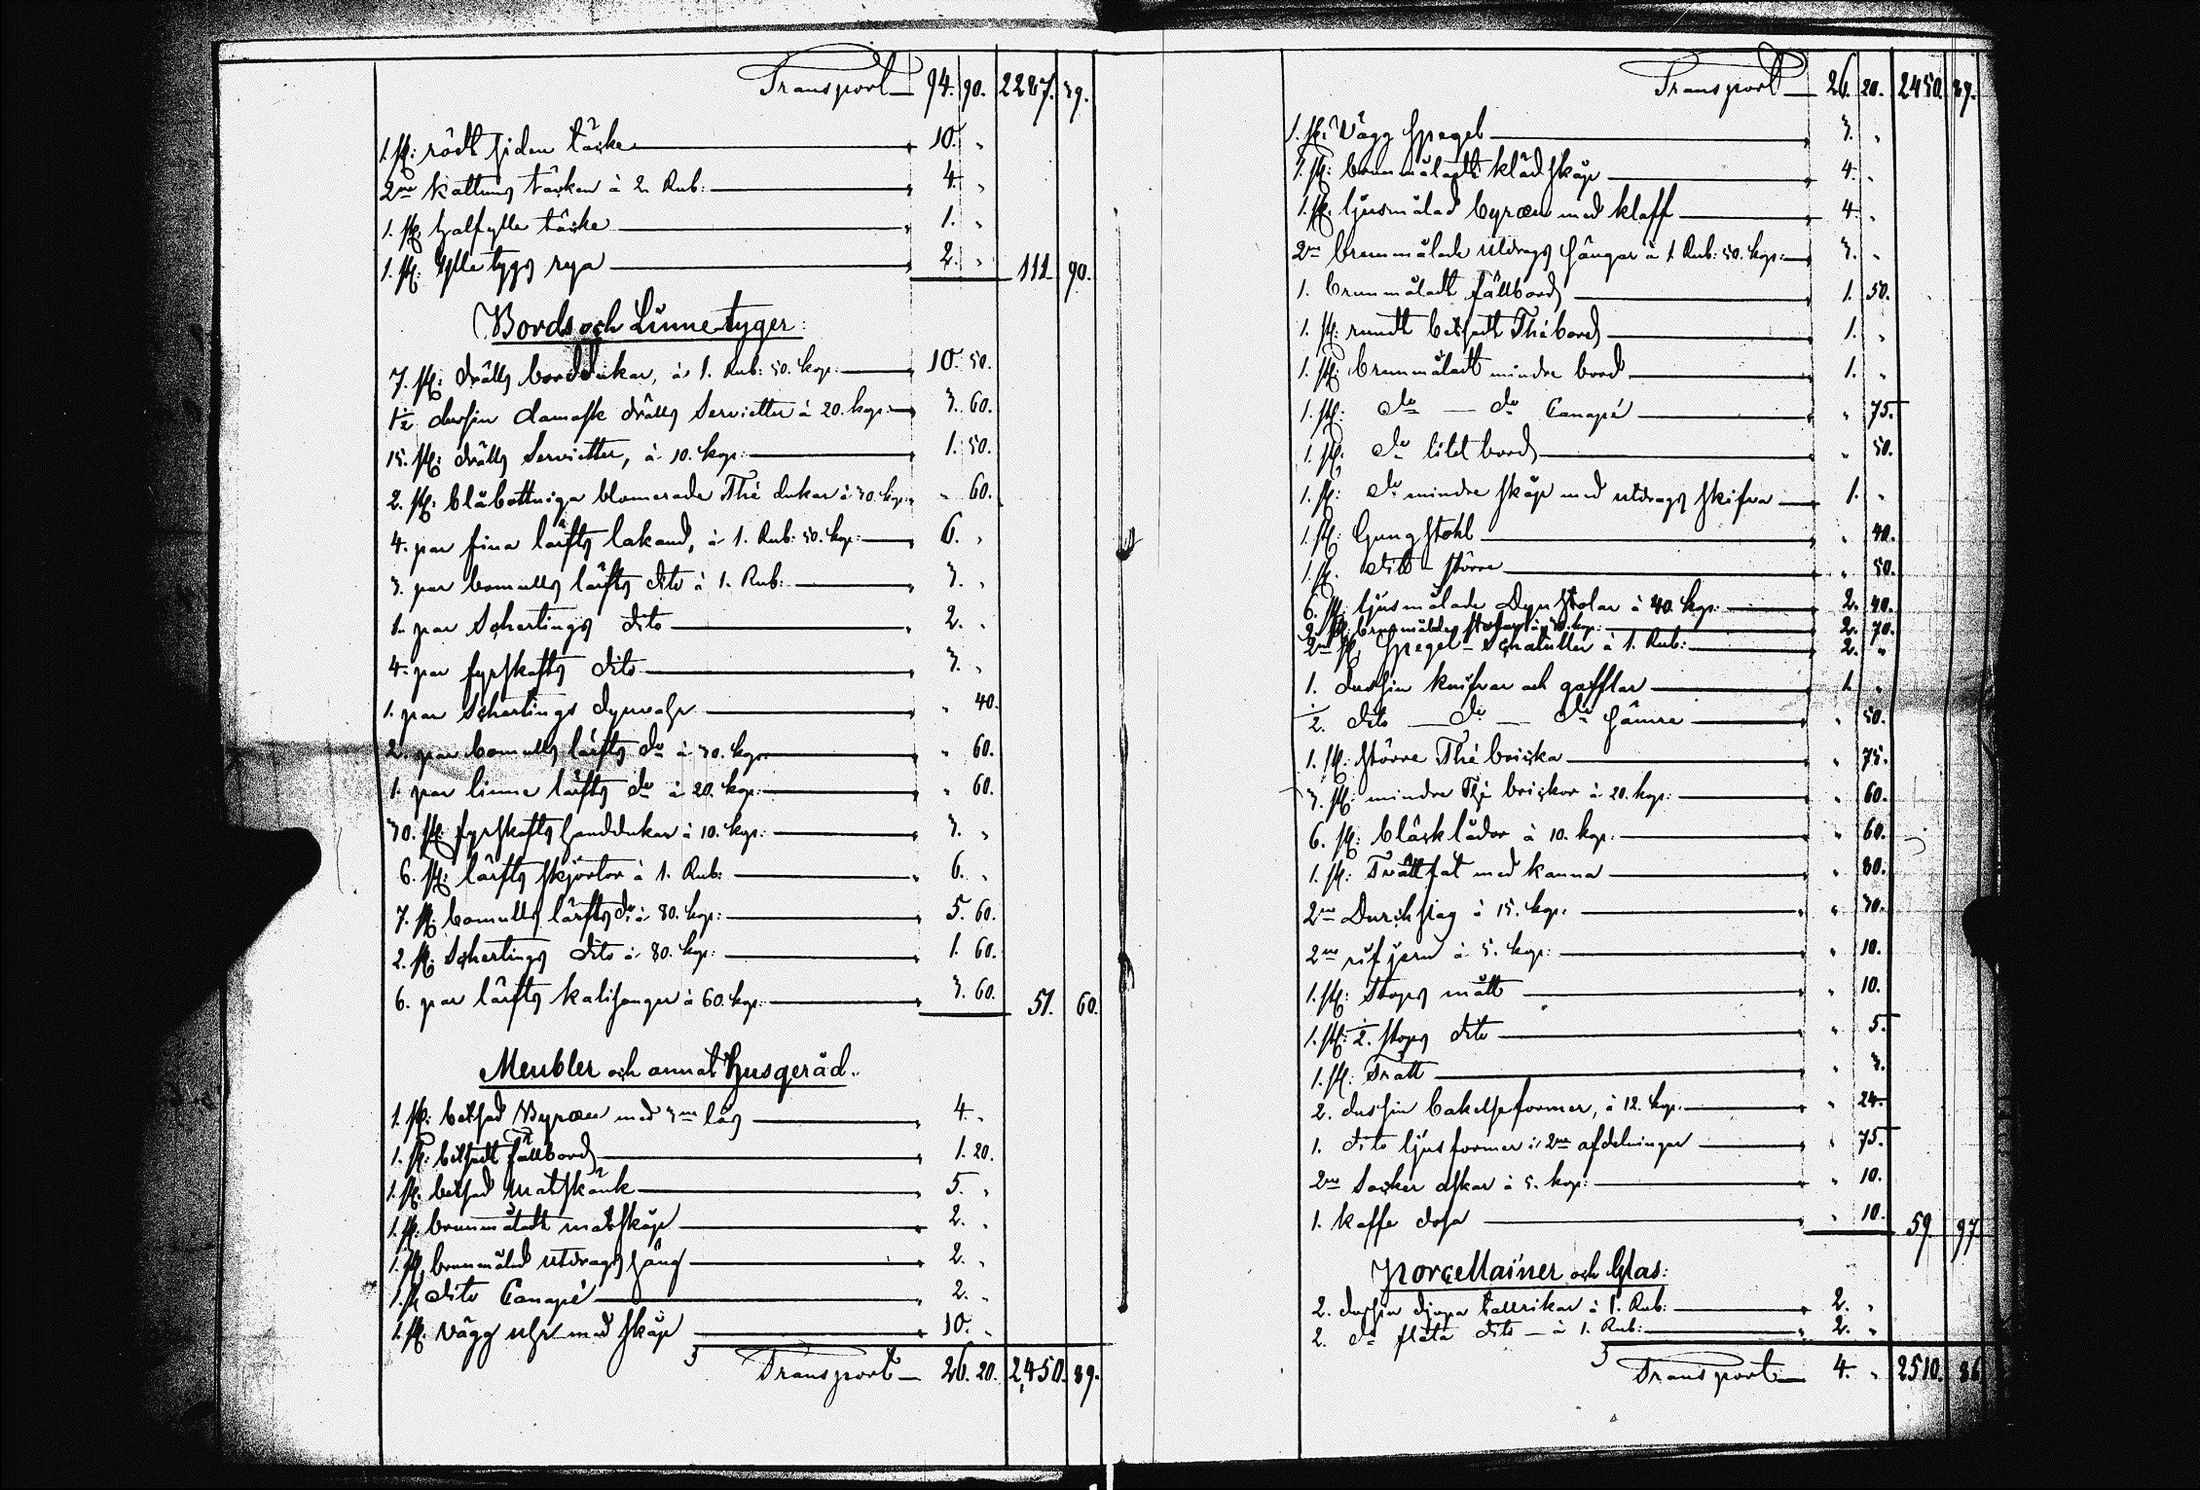 Transport 94. 90. 2287. 39.
1 st: rödt siden täcke 10. "
2ne kattuns täcken à 2 Rub: 4. "
1. st halfylle täcke 1. "
1. st: Ylletygs rya 2. " 111 90.
Bords och Linne-tyger:
7. st: drälls bordddukar, à 1. Rub: 50. kop: 10. 50.
1½ dussin damask drälls Servietter à 20. kop: 3. 60.
15. st: drälls Servietter, à 10. kop: 1. 50.
2. st: blåbottniga blomerade Thé dukar à 30. kop: " 60.
4. par fina lärfts lakand, à 1. Rub: 50. kop: 6. "
3. par bomulls lärfts dito à 1. Rub: 3. "
1. par Schertings dito 2. "
4. par fyrskafts dito 3. "
1. par Schertings dynvahr " 40.
2. par bomulls lärfts do à 30. kop: " 60.
1. par linne lärfts do à 20. kop: " 60.
30. st: fyrskafts handdukar à 10. kop: 3. "
6. st: lärfts skjortor à 1. Rub: 6. "
7. st: bomulls lärfts do à 80. kop: 5. 60.
2. st: Schertings dito à 80. kop: 1. 60.
6. par lärfts kalsonger à 60. kop: 3. 60. 51. 60.
Meubler och annat Husgeråd.
1. st: betsad Byrån med 3ne lås 4. "
1. st: betsadt fällbord 1. 20.
1. st: betsad Matskänk 5. "
1. st: brunmåladt matskåp 2. "
1. st: brunmålad utdrags säng 2. "
1. st dito Canapé 2. "
1. st. Vägg uhr med skåp 10. "
Transport 26. 20. 2,450. 89.
Transport 26. 20. 2450. 89.
1. st: Vägg Spegel 3. "
1. st: brunmåladt klädskåp 4. "
1. st: ljusmålad byrån med klaff 4. "
2ne brunmålade utdrags sängar à 1 Rub: 50. kop: 3. "
1. brunmåladt fällbord 1. 50.
1. st: rundt betsadt Thébord 1. "
1. st: brunmåladt mindre bord 1. "
1. st: do — do Canapé " 75.
1. st. do litet bord " 50.
1. st: do mindre skåp med utdrags skifva 1. "
1. st: Gungstohl " 40.
1. st. dito större " 50.
6. st: ljusmålade Dynstolar à 40. kop: 2. 40.
st: brunmålade stolar à 30. kop: 2. 70.
2ne st. Spegel-Schatuller à 1. Rub: 2. "
1. dussin knifvar och gafflar 1. "
½. dito — do — do sämre " 50.
1. st: större Thé bricka " 75.
3. st: mindre Thé brickor à 20. kop: " 60.
6. st: bläcklådor à 10. kop: " 60.
1. st: Tvättfat med kanna " 80.
2ne Durchslag à 15. kop: " 30.
2ne rifjern à 5. kop: " 10.
1. st: Stops mått " 10.
1. st: ½. stops dito " 5.
1. st: Tratt " 3.
2. dussin bakelseformer, à 12. kop: " 24.
1. dito ljusformer i 2ne afdelningar " 75.
2ne Socker askar à 5. kop: " 10.
1. kaffe dosa " 10. 59. 97.
Porcellainer och Glas:
2. dussin djupa tallrikar à 1. Rub: 2. "
2. do flata dito — à 1. Rub: 2. "
Transport 4. " 2510. 86